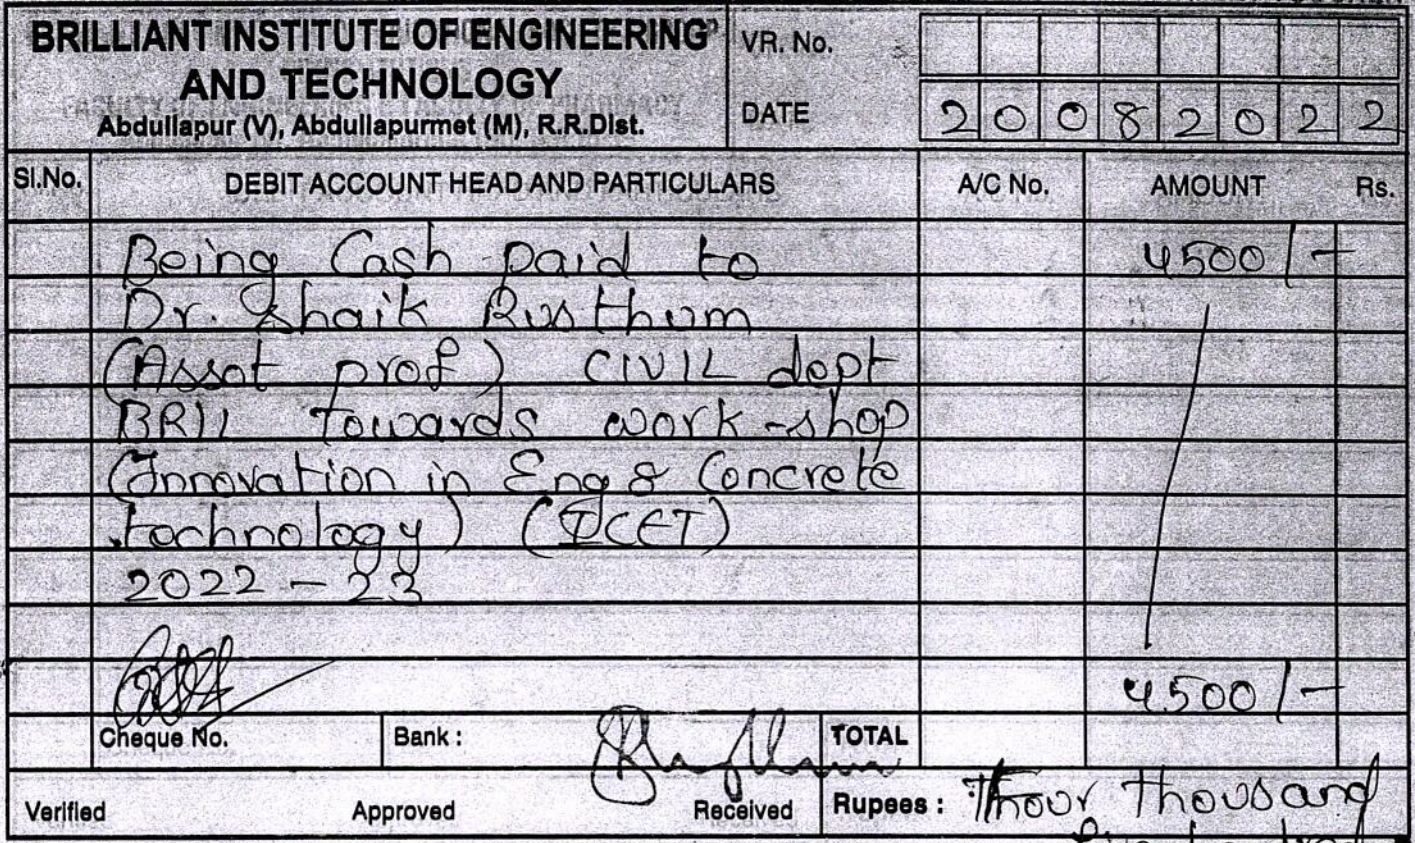 BRILLIANT INSTITUTE OF ENGINEERING
AND TECHNOLOGY
Abdullapur (V), Abdullapurmet (M), R.R.Dist.
VR. No.
DATE 20082022
Sl.No. DEBIT ACCOUNT HEAD AND PARTICULARS A/C No. AMOUNT Rs.
Being Cash paid to 4500/-
Dr. Shaik Rusthum
(Assot prof) CIVIL dept
BRIL towards work-shop
(Innovation in Eng & Concrete
technology) (ICET)
2022 - 23
4500/-
Cheque No. Bank : TOTAL
Verified Approved Received Rupees : Thour thousand